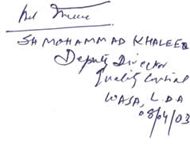 SH MOHAMMAD KHALEEQ
Deputy Director
Quality Control
WASA, LDA
08/04/03